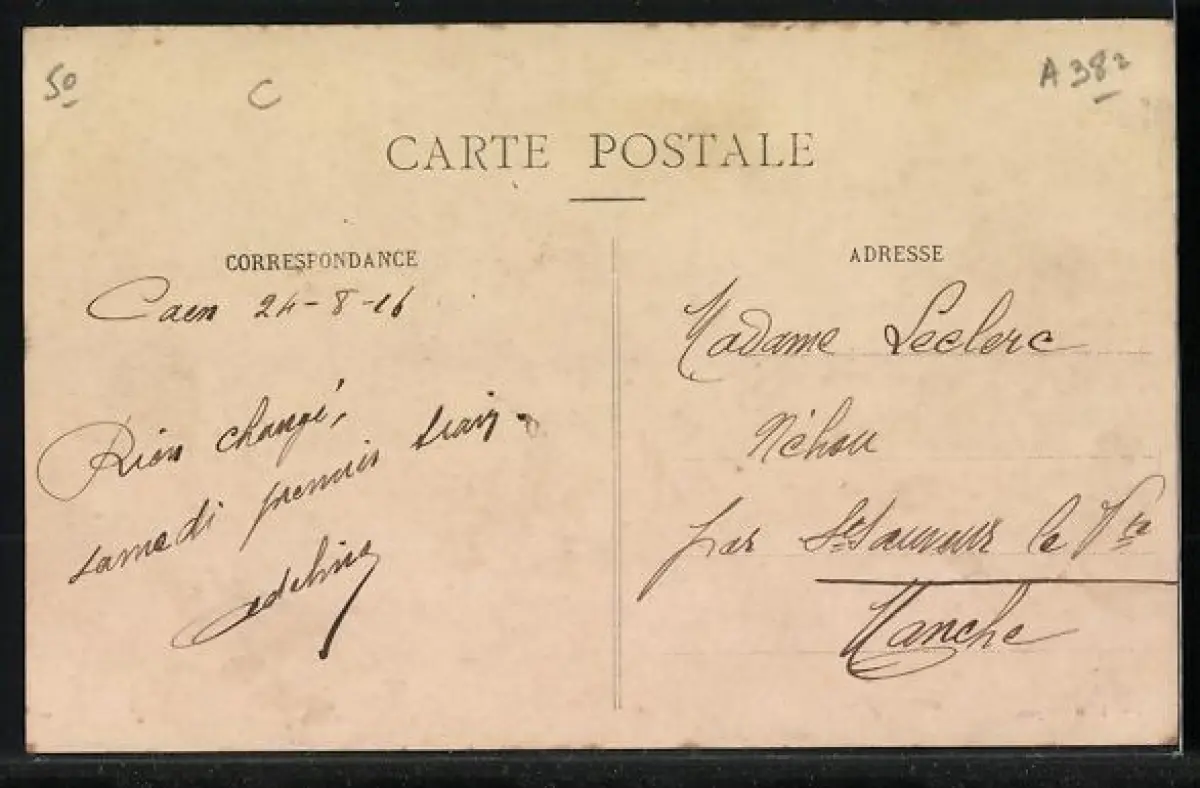 50
C
A 382
CARTE POSTALE
CORRESPONDANCE
Caen 24-8-16
Rien changé,
samedi premier train
Adeline
ADRESSE
Madame Leclerc
Néhou
par St Sauveur le Vte
Manche